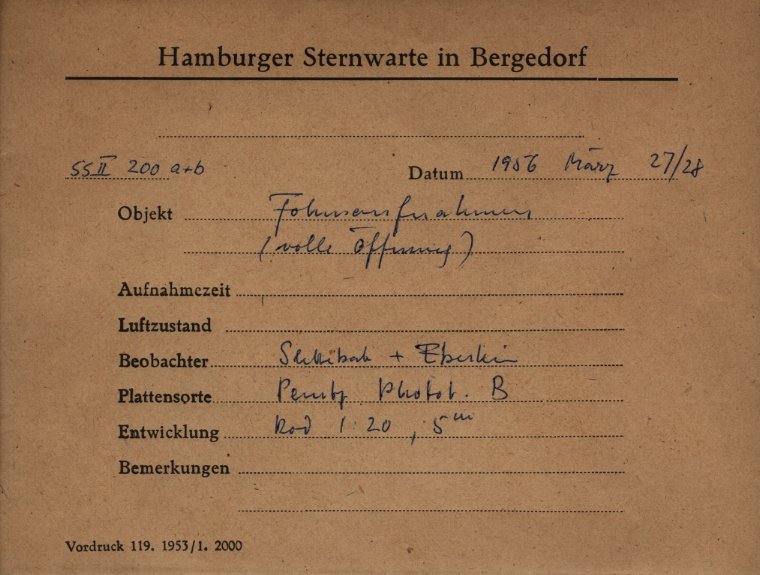 Hamburger Sternwarte in Bergedorf
SSII 200 a+b Datum 1956 März 27/28
Objekt
(volle Öffnung)
Aufnahmezeit
Luftzustand
Beobachter +
Plattensorte B
Entwicklung Rod 1:20, 5m
Bemerkungen
Vordruck 119. 1953/1. 2000